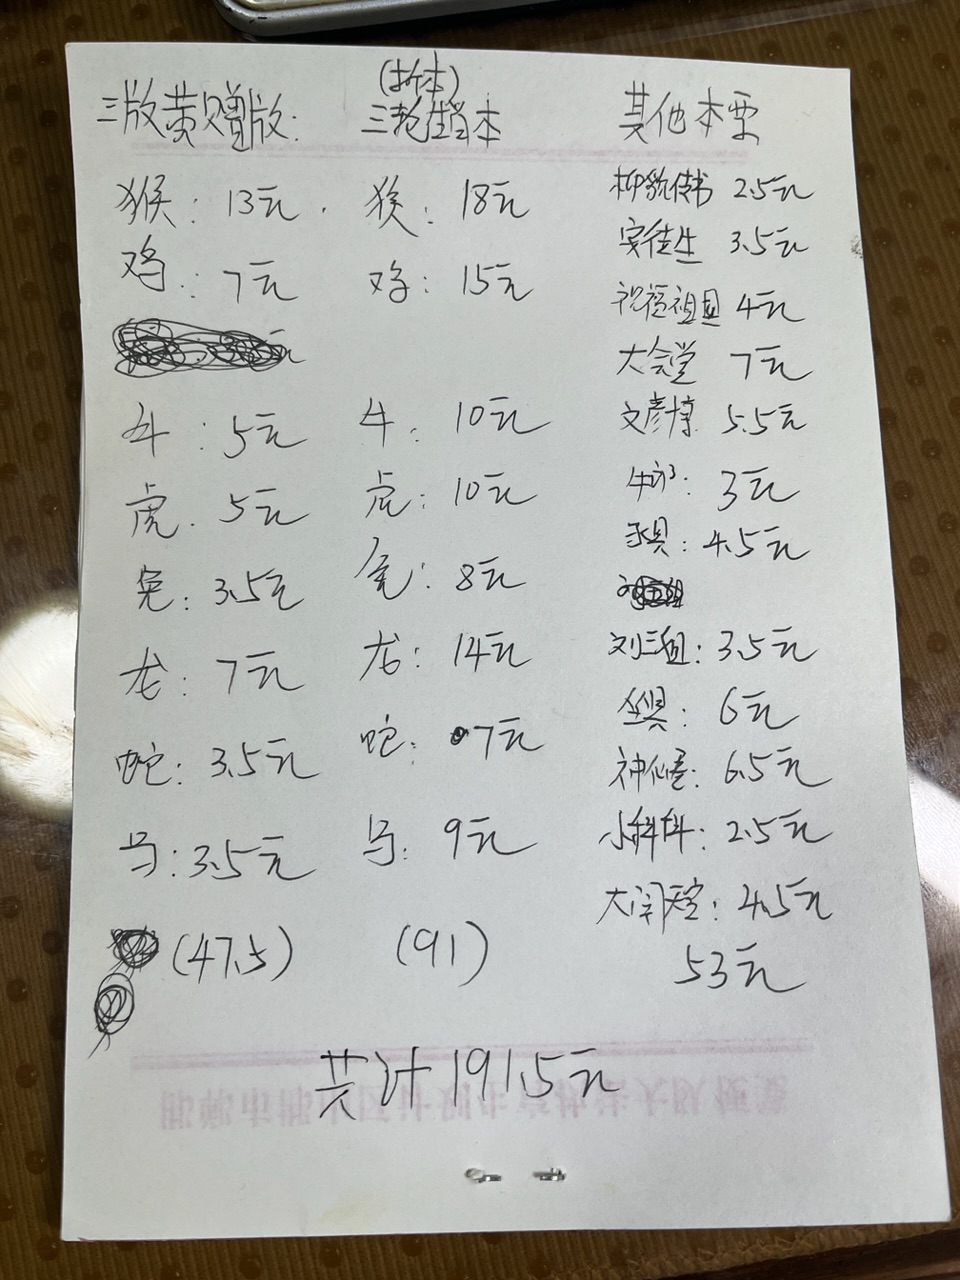 三版黄赠版:
猴: 13元.
鸡: 7元
牛: 5元
虎. 5元
兔: 3.5元
龙: 7元
蛇: 3.5元
马: 3.5元
(47.5)
(折本)
三轮生肖本
猴: 18元
鸡: 15元
牛: 10元
虎: 10元
兔: 8元
龙: 14元
蛇: 7元
马: 9元
(91)
其他本票
柳毅传书 2.5元
安徒生 3.5元
祝福祖国 4元
大会堂 7元
文彦博 5.5元
3元
4.5元
刘三姐: 3.5元
坐具: 6元
6.5元
小蝌蚪: 2.5元
大闹天宫: 4.5元
53元
共计191.5元